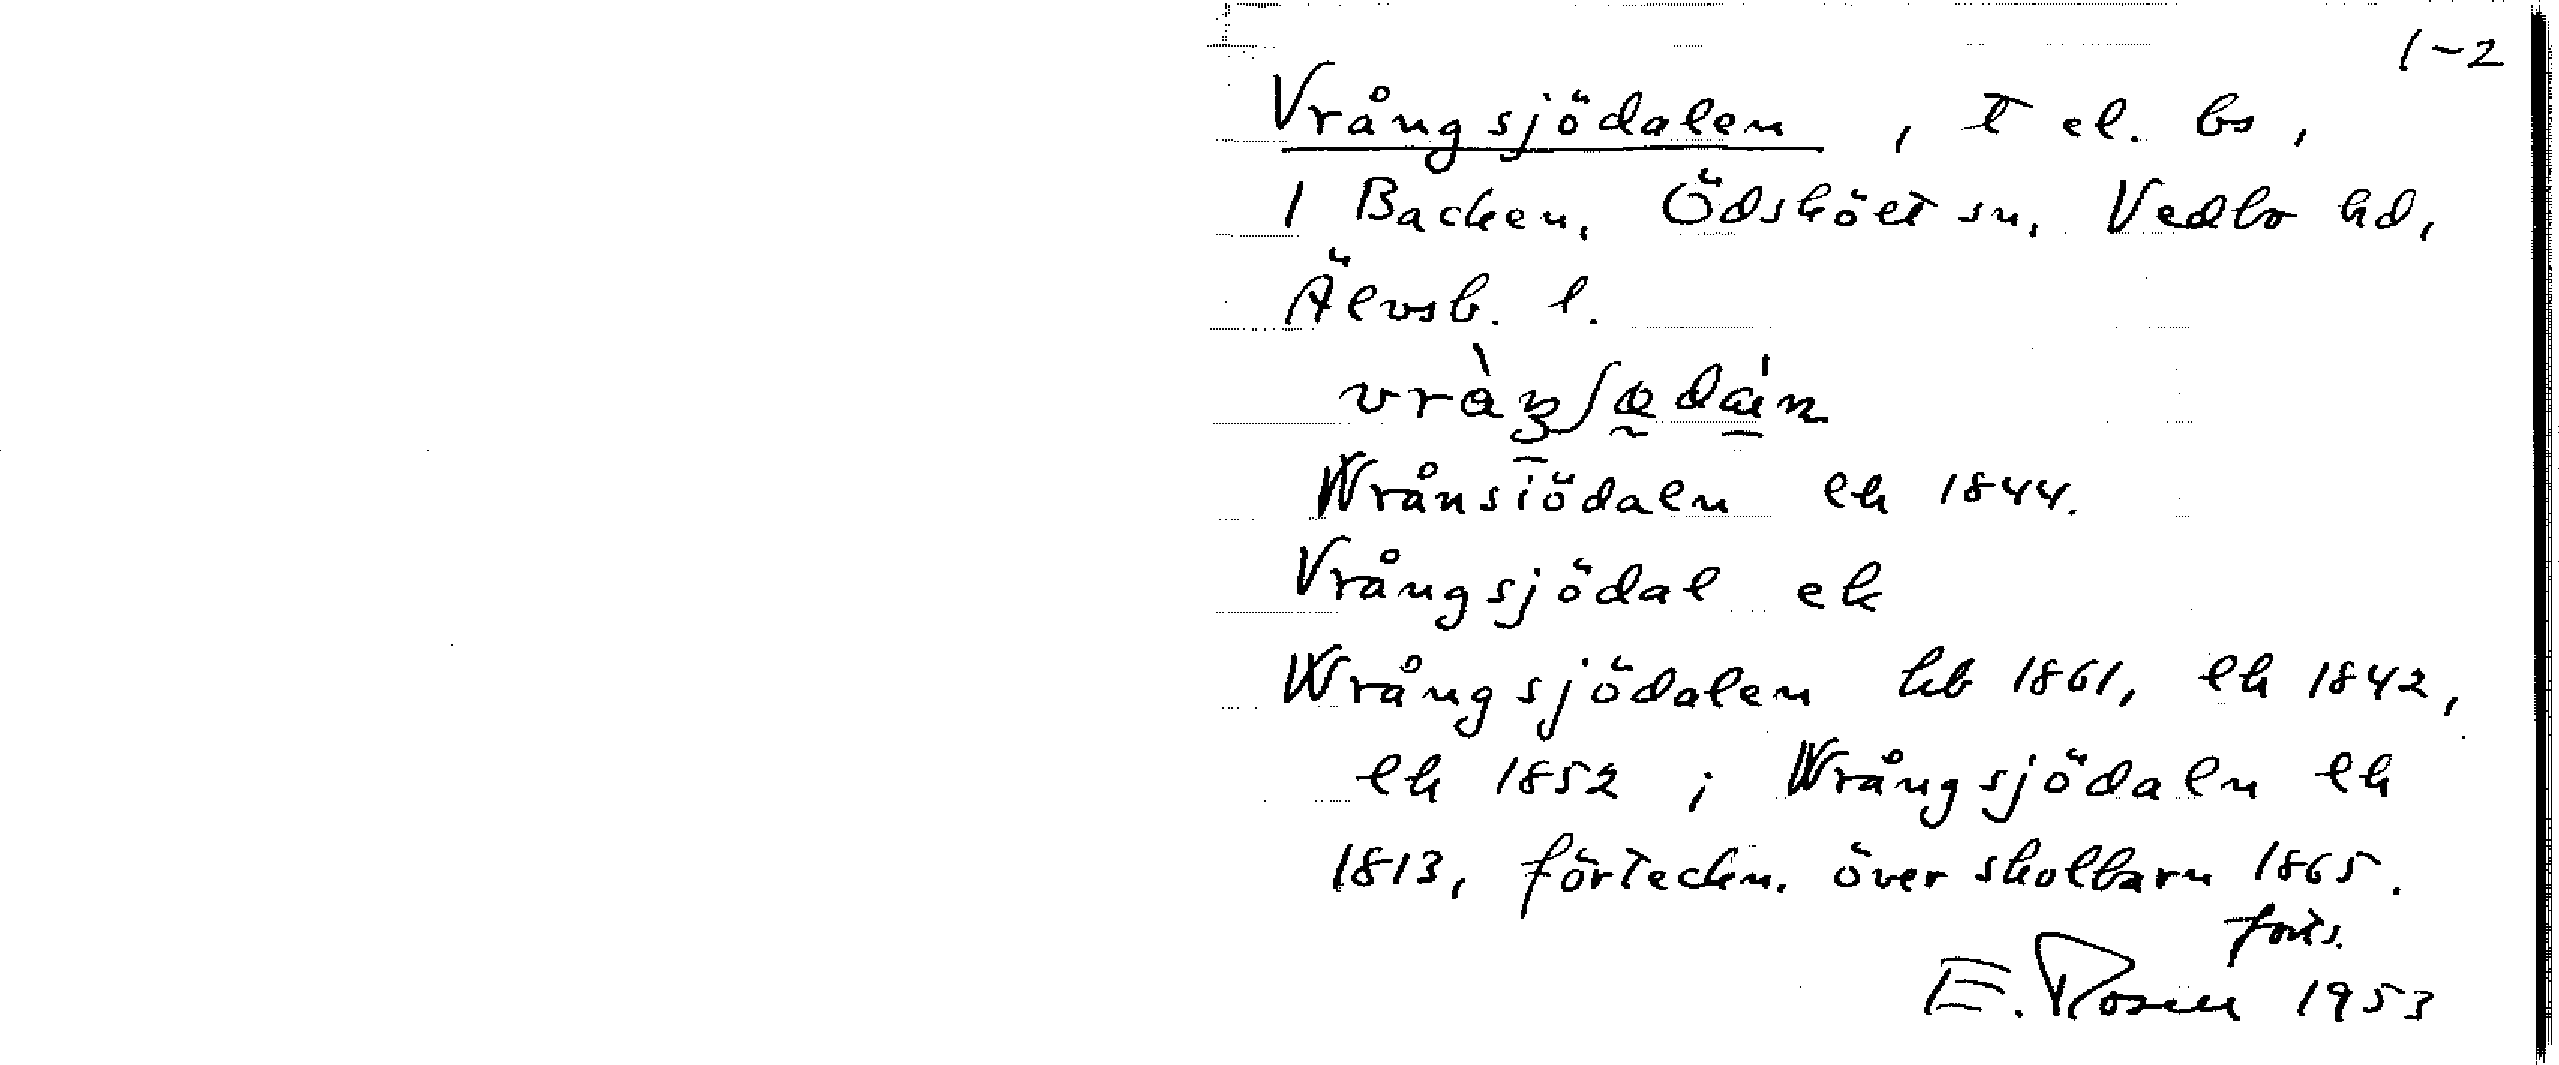 1-2
Vrångsjödalen, t el. bs,
1 Backen, Ödskölt sn, Vedbo hd,
Älvsb. l.
Wrånsiödaln lh 1844.
Vrångsjödal ek
Wrångsjödalen hb 1861, lh 1842,
lh 1852; Wrångsjödaln lh
1813, förteckn. över skolbarn 1865.
forts.
E. Rosell 1953